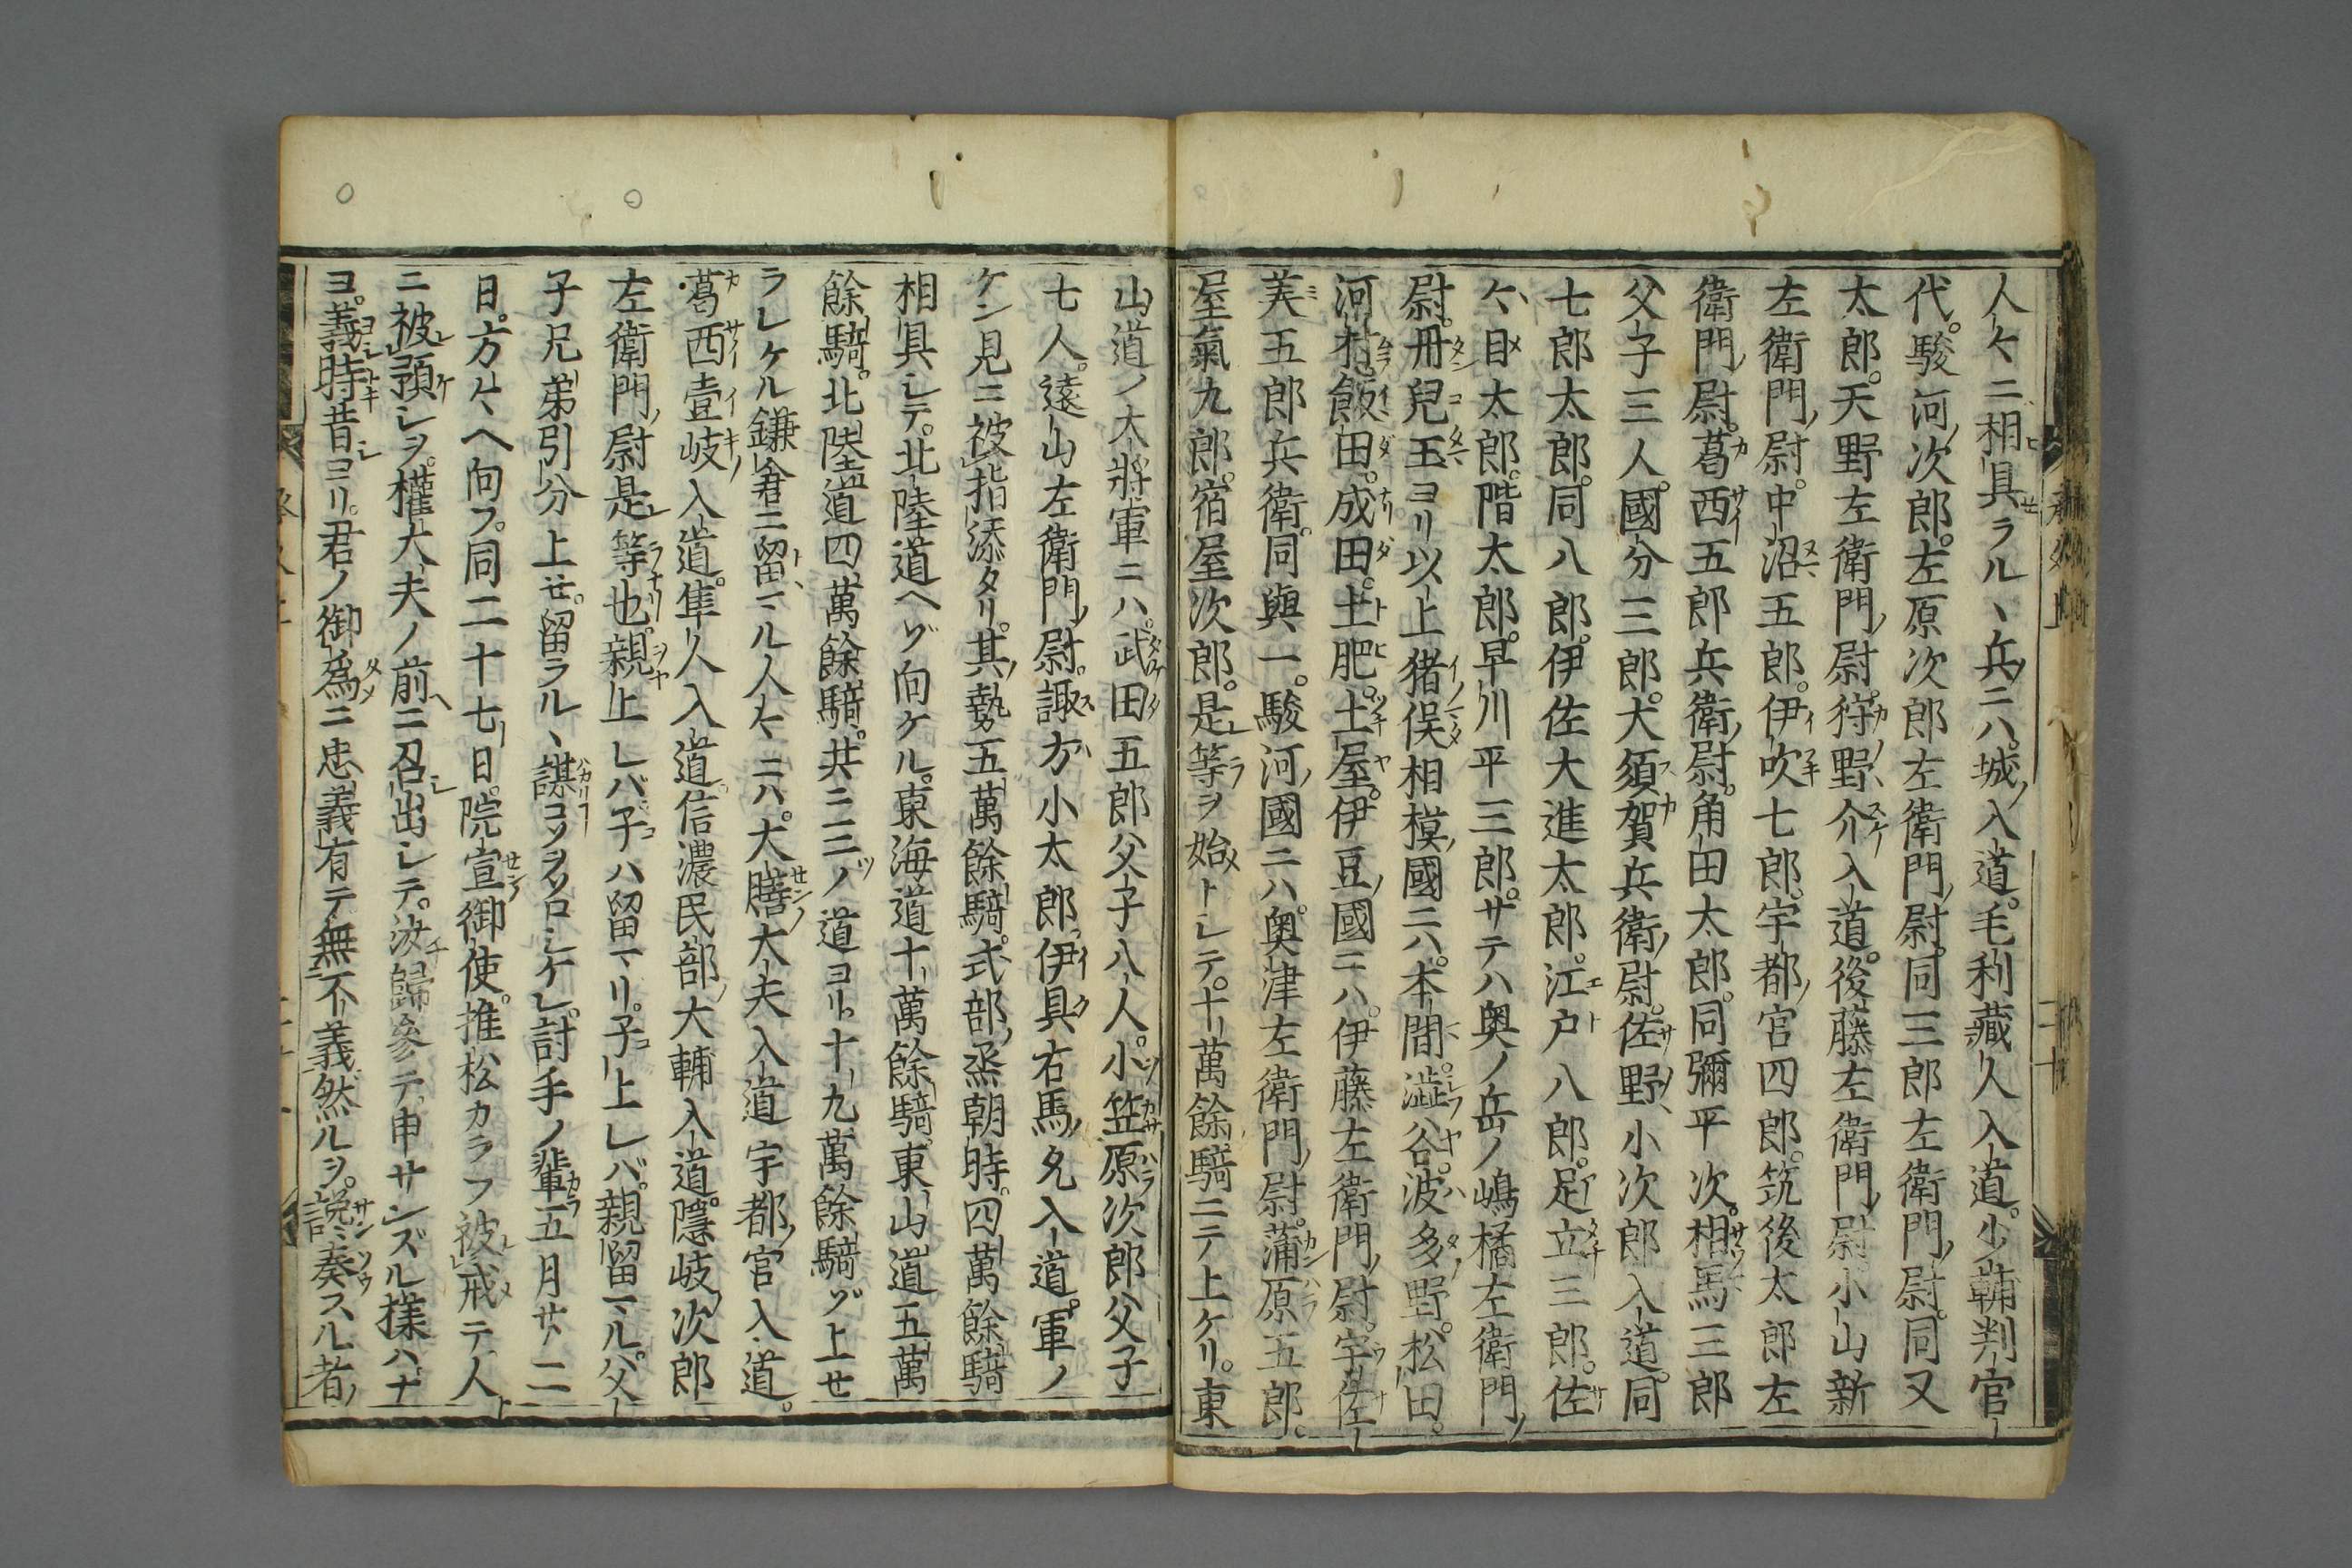 人々ニ相具ラルヽ兵ニハ。城ノ入道。毛利藏人入道。少輔判官
代。駿河ノ次郎。左原次郎左衛門ノ尉。同三郎左衛門ノ尉。同又
太郎。天野左衛門ノ尉。狩野ノ介入道。後藤左衛門ノ尉。小山新
左衛門ノ尉。中沼五郎。伊吹七郎。宇都ノ宮四郎。筑後太郎左
衛門ノ尉。葛西五郎兵衛ノ尉。角田太郎。同彌平次。相馬三郎
父子三人。國分三郎。犬須賀兵衛ノ尉。佐野ノ小次郎入道。同
七郎太郎。同八郎。伊佐大進太郎。江戸八郎。足立三郎。佐
々目太郎。階太郎。早川平三郎。サテハ奥ノ岳ノ嶋橘左衛門ノ
尉。丹兒玉ヨリ以上猪俣相模ノ國ニハ。本間。澁谷。波多野。松田。
河村。飯田。成田。土肥。土屋。伊豆ノ國ニハ。伊藤左衛門ノ尉。宇佐
美五郎兵衛。同與一。駿河ノ國ニハ。奥津左衛門ノ尉。蒲原五郎。
屋氣九郎。宿屋次郎。是等ヲ始トシテ。十萬餘騎ニテ上ケリ。東
山道ノ大將軍ニハ。武田五郎父子八人。小笠原次郎父子
七人。遠山左衛門ノ尉。諏方小太郎。伊具右馬ノ允入道。軍ノ
ケン見ニ被指添タリ。其ノ勢五萬餘騎。式部ノ烝朝時。四萬餘騎
相具シテ。北陸道ヘゾ向ケル。東海道十萬餘騎。東山道五萬
餘騎。北陸道四萬餘騎。共ニ三ノ道ヨリ。十九萬餘騎ゾ上せ
ラレケル鎌倉ニ留マル人々ニハ。大膳ノ大夫入道宇都ノ宮入道。
葛西壹岐ノ入道。隼人入道。信濃民部ノ大輔入道。隱岐ノ次郎
左衛門ノ尉是等也。親上レバ子ハ留マリ。子上レバ。親留マル。父
子兄弟引分上せ。留ラルヽ謀コソヲソロシケレ。討手ノ輩五月廿二
日。方々ヘ向フ。同二十七日。院宣ノ御使。推松カラフ被戒テ人
ニ被預シヲ。權大夫ノ前ニ召出シテ。汝歸參テ。申サンズル様ハ。ナ
ヨ。義時昔ヨリ。君ノ御爲ニ忠義有テ無不義然ルヲ。讒奏スル者ノ